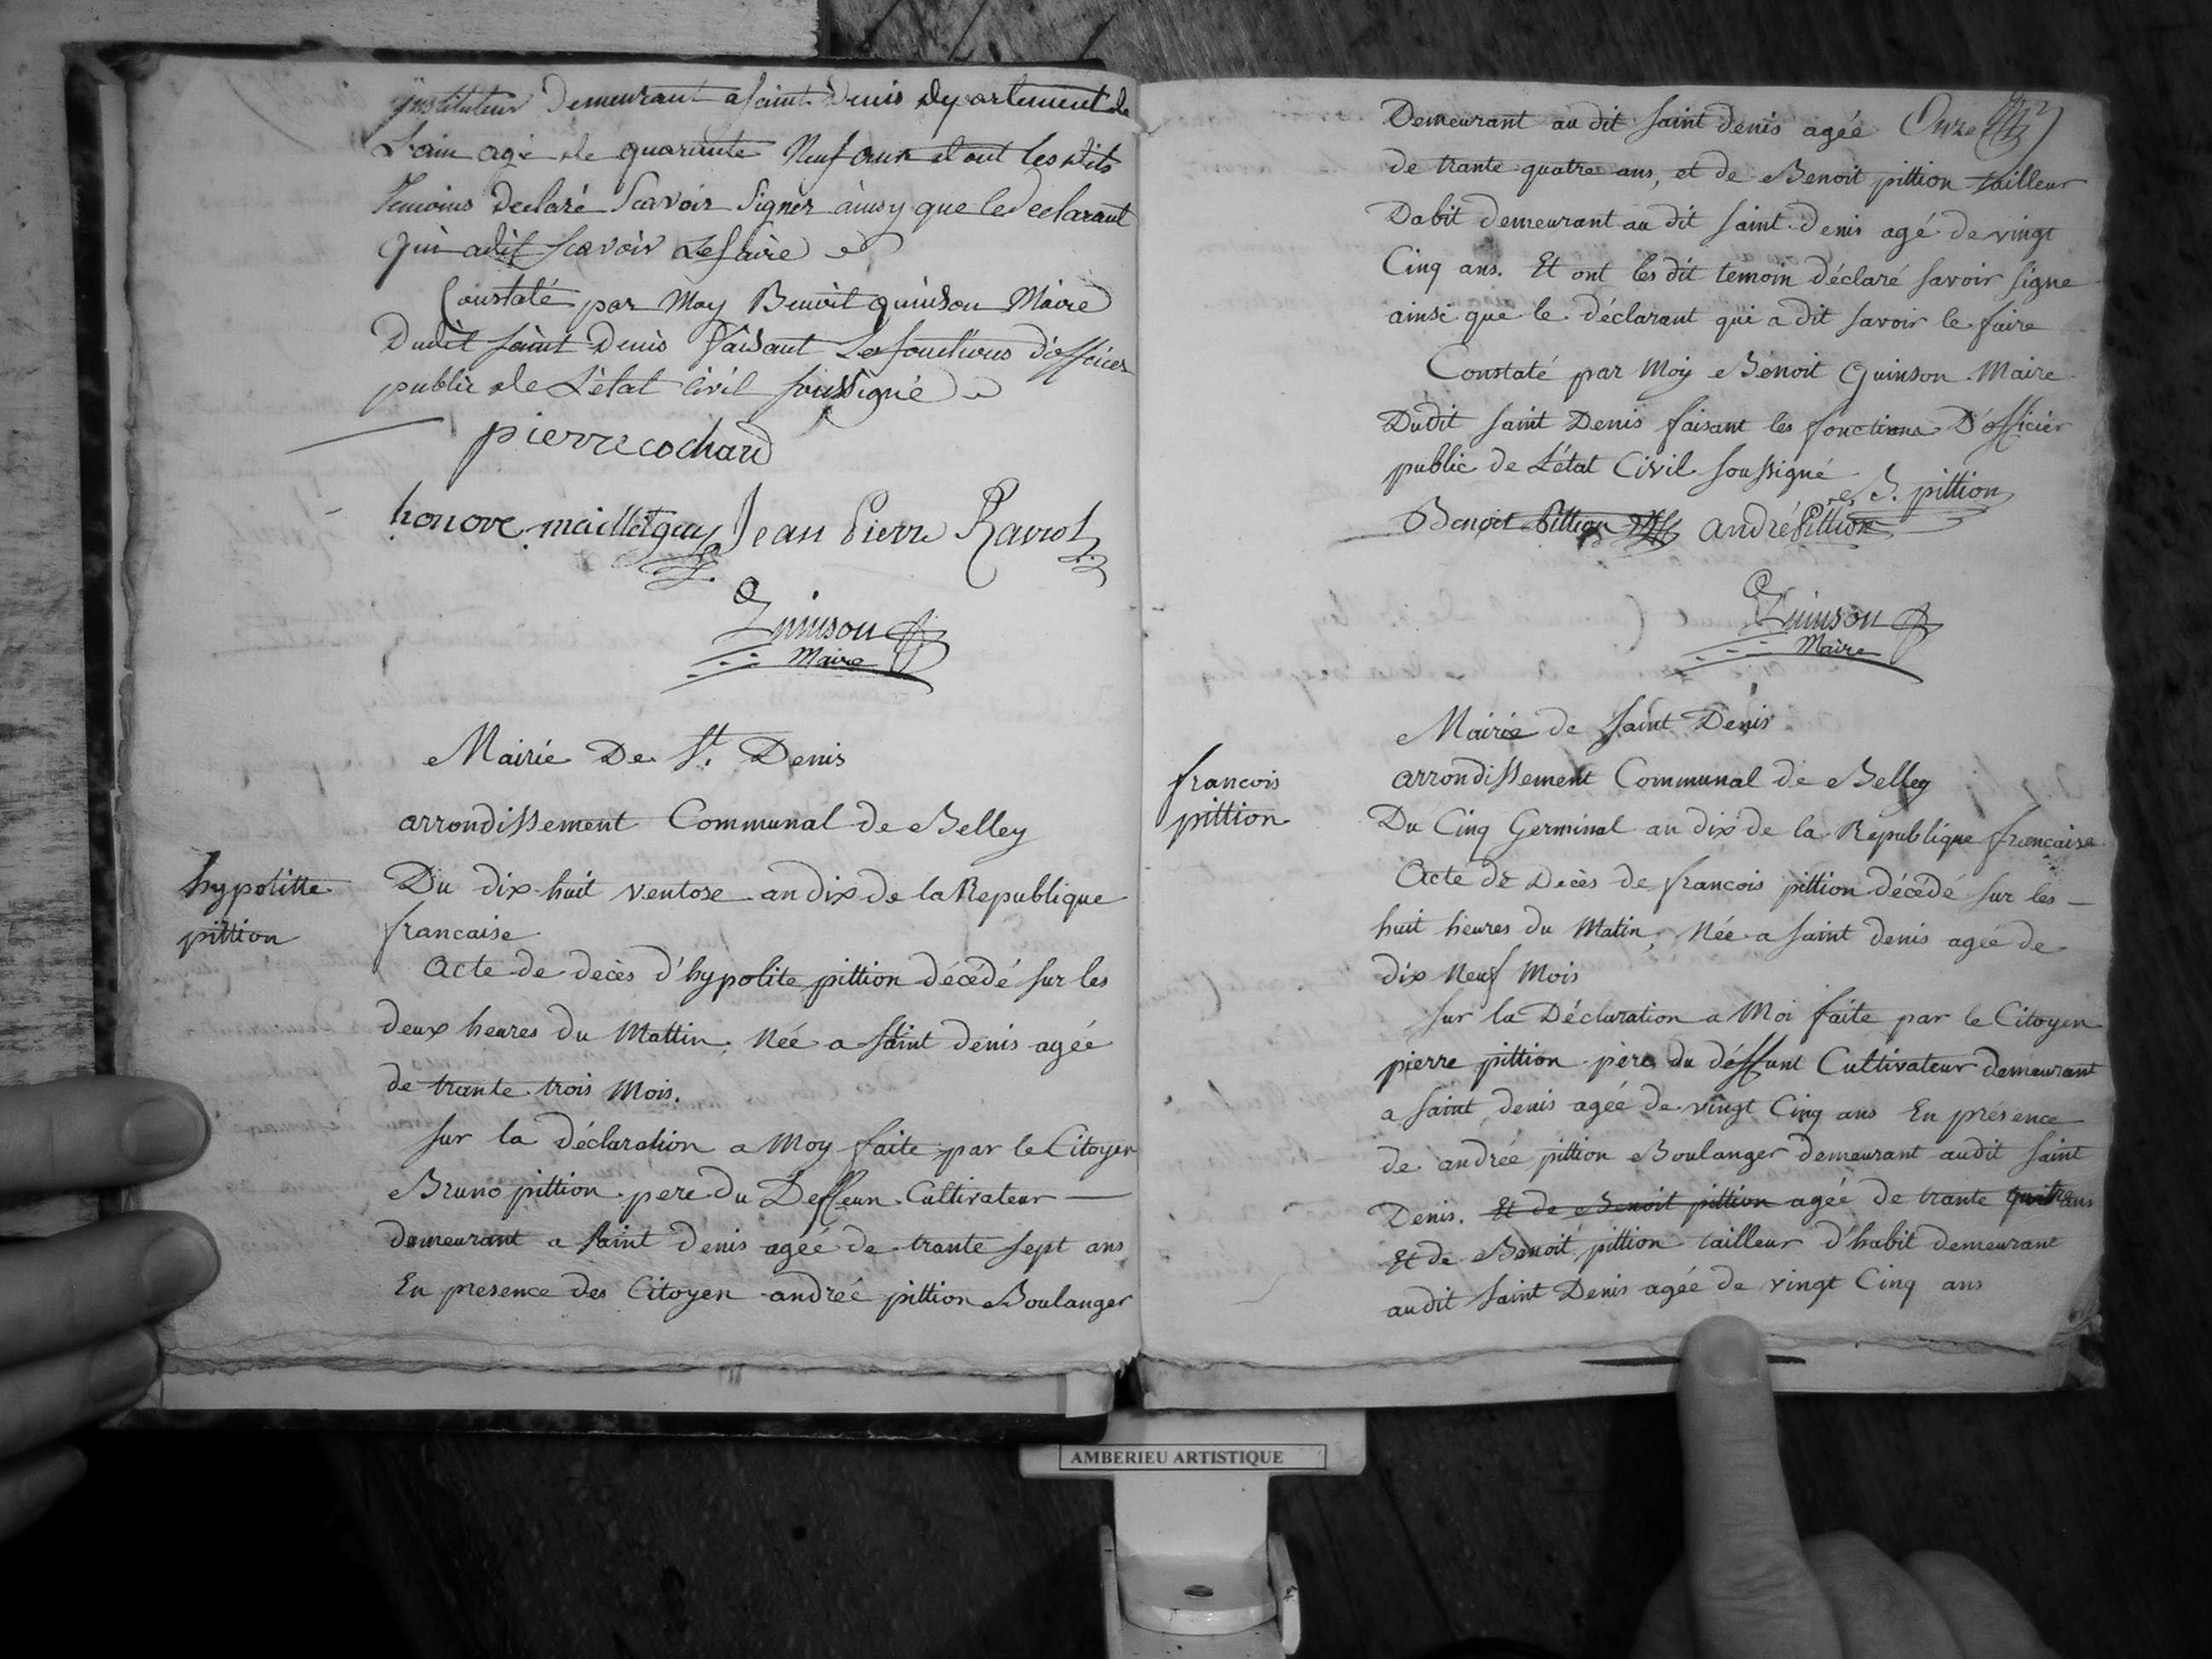 instituteur Demeurant a saint Denis Departement de
L'ain agé de quarante Neuf ans et ont les dits
Temoins declaré Scavoir Signer ainsy que le declarant
qui a dit scavoir le faire
Constaté par Moy Benoit quinson Maire
Dudit saint Denis faisant les fonctions d'officier
public de L'état civil soussigné
pierre cochard
honore maillet guy Jean Pierre Raviot
Quinson
Maire
Mairie De St. Denis
arrondissement Communal de Belley
hypolitte
pittion
Du dix huit ventose an dix de la Republique
francaise
Acte de decès d'hypolite pittion décédé sur les
deux heures du Mattin, Née a saint denis agée
de trante trois Mois.
sur la déclaration a Moy faite par le Citoyen
Bruno pittion pere du Deffeun Cultivateur
demeurant a saint denis agée de trante sept ans
En presence des Citoyen andreé pittion Boulanger
Demeurant au dit saint denis agée Onze
de trante quatre ans, et de Benoit pittion tailleur
Dabit demeurant au dit saint denis agé de vingt
Cinq ans. Et ont les dit temoin déclaré savoir signe
ainsi que le déclarant qui a dit savoir le faire
Constaté par Moy Benoit Quinson Maire
Dudit saint Denis faisant les fonctions D'officier
public de L'état Civil soussigné
B. pittion
Benoit Pittion andré Pittion
Quinson
Maire
Mairie de saint Denis
arrondissement Communal de Belley
francois
pittion
Du Cinq Germinal an dix de la Republique francaise
Acte de Decès de francois pittion décédé sur les
huit heures du Matin, Née a saint denis agée de
dix Neuf Mois
sur la Déclaration a Moi faite par le Citoyen
pierre pittion père du déffunt Cultivateur demeurant
a saint denis agée de vingt Cinq ans En présence
de andrée pittion Boulanger demeurant audit saint
Denis. Et de Benoit pittion agée de trante quatre ans
Et de Benoit pittion tailleur d'habit demeurant
audit saint Denis agée de vingt Cinq ans
AMBERIEU ARTISTIQUE